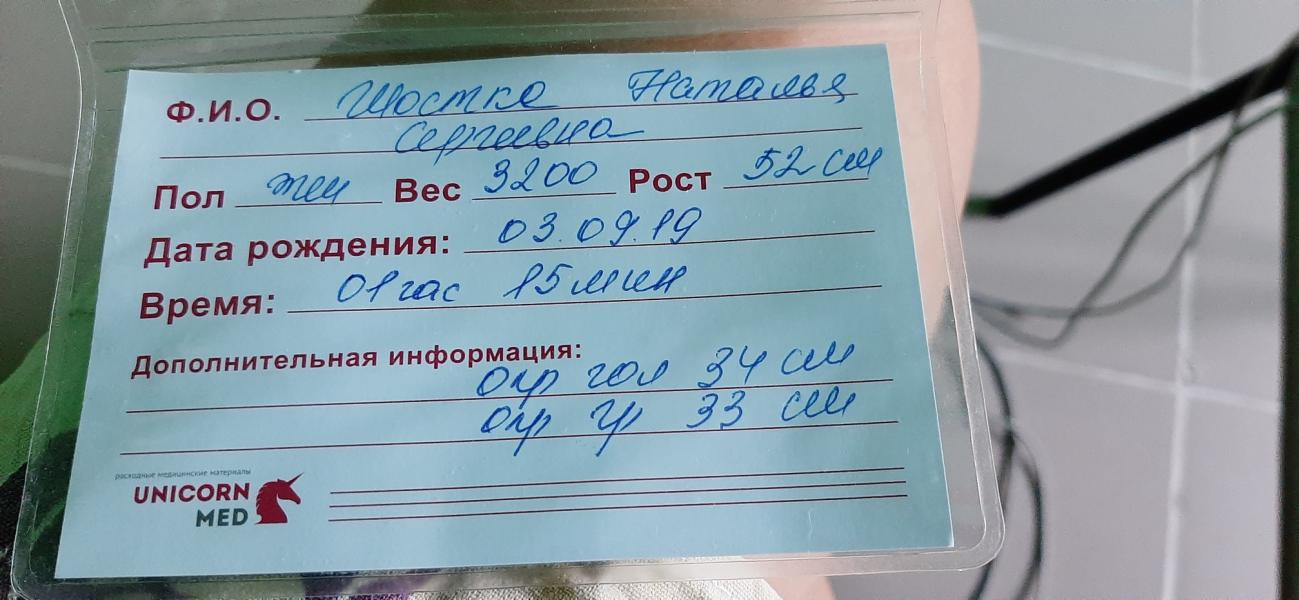 Ф.И.О. Шостко Наталья
Сергеевна
Пол жен Вес 3200 Рост 52 см
Дата рождения: 03.09.19
Время: 01 час 15 мин
Дополнительная информация:
окр гол 34 см
окр гр 33 см
расходные медицинские материалы
UNICORN
MED